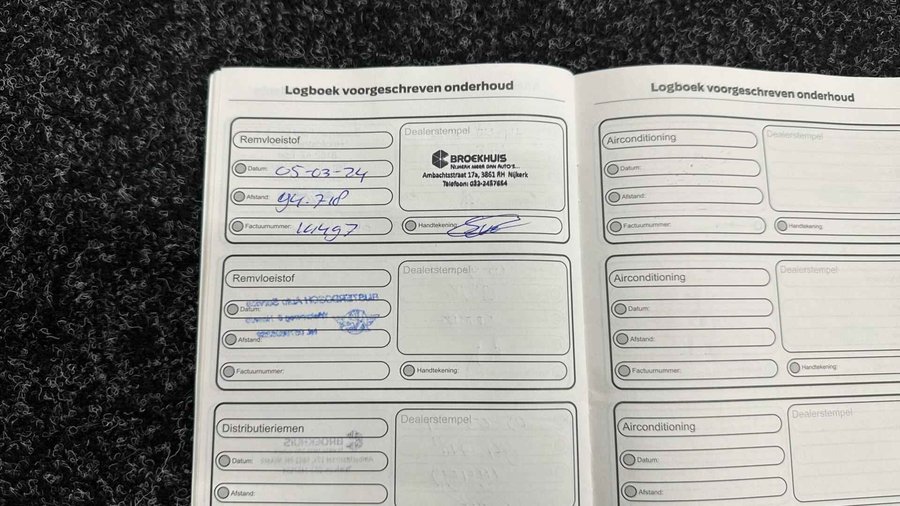 Logboek voorgeschreven onderhoud
Remvloeistof
Datum: 05-03-24
Afstand: 94.718
Factuurnummer: 14497
Dealerstempel
BROEKHUIS
NIJKERK MEER DAN AUTO'S...
Ambachtsstraat 17a, 3861 RH Nijkerk
Telefoon: 033-2457654
Handtekening:
Remvloeistof
Datum:
Afstand:
Factuurnummer:
Dealerstempel
Handtekening:
Distributieriemen
Datum:
Afstand:
Dealerstempel
Logboek voorgeschreven onderhoud
Airconditioning
Datum:
Afstand:
Factuurnummer:
Dealerstempel
Handtekening:
Airconditioning
Datum:
Afstand:
Factuurnummer:
Dealerstempel
Handtekening:
Airconditioning
Datum:
Afstand:
Dealerstempel